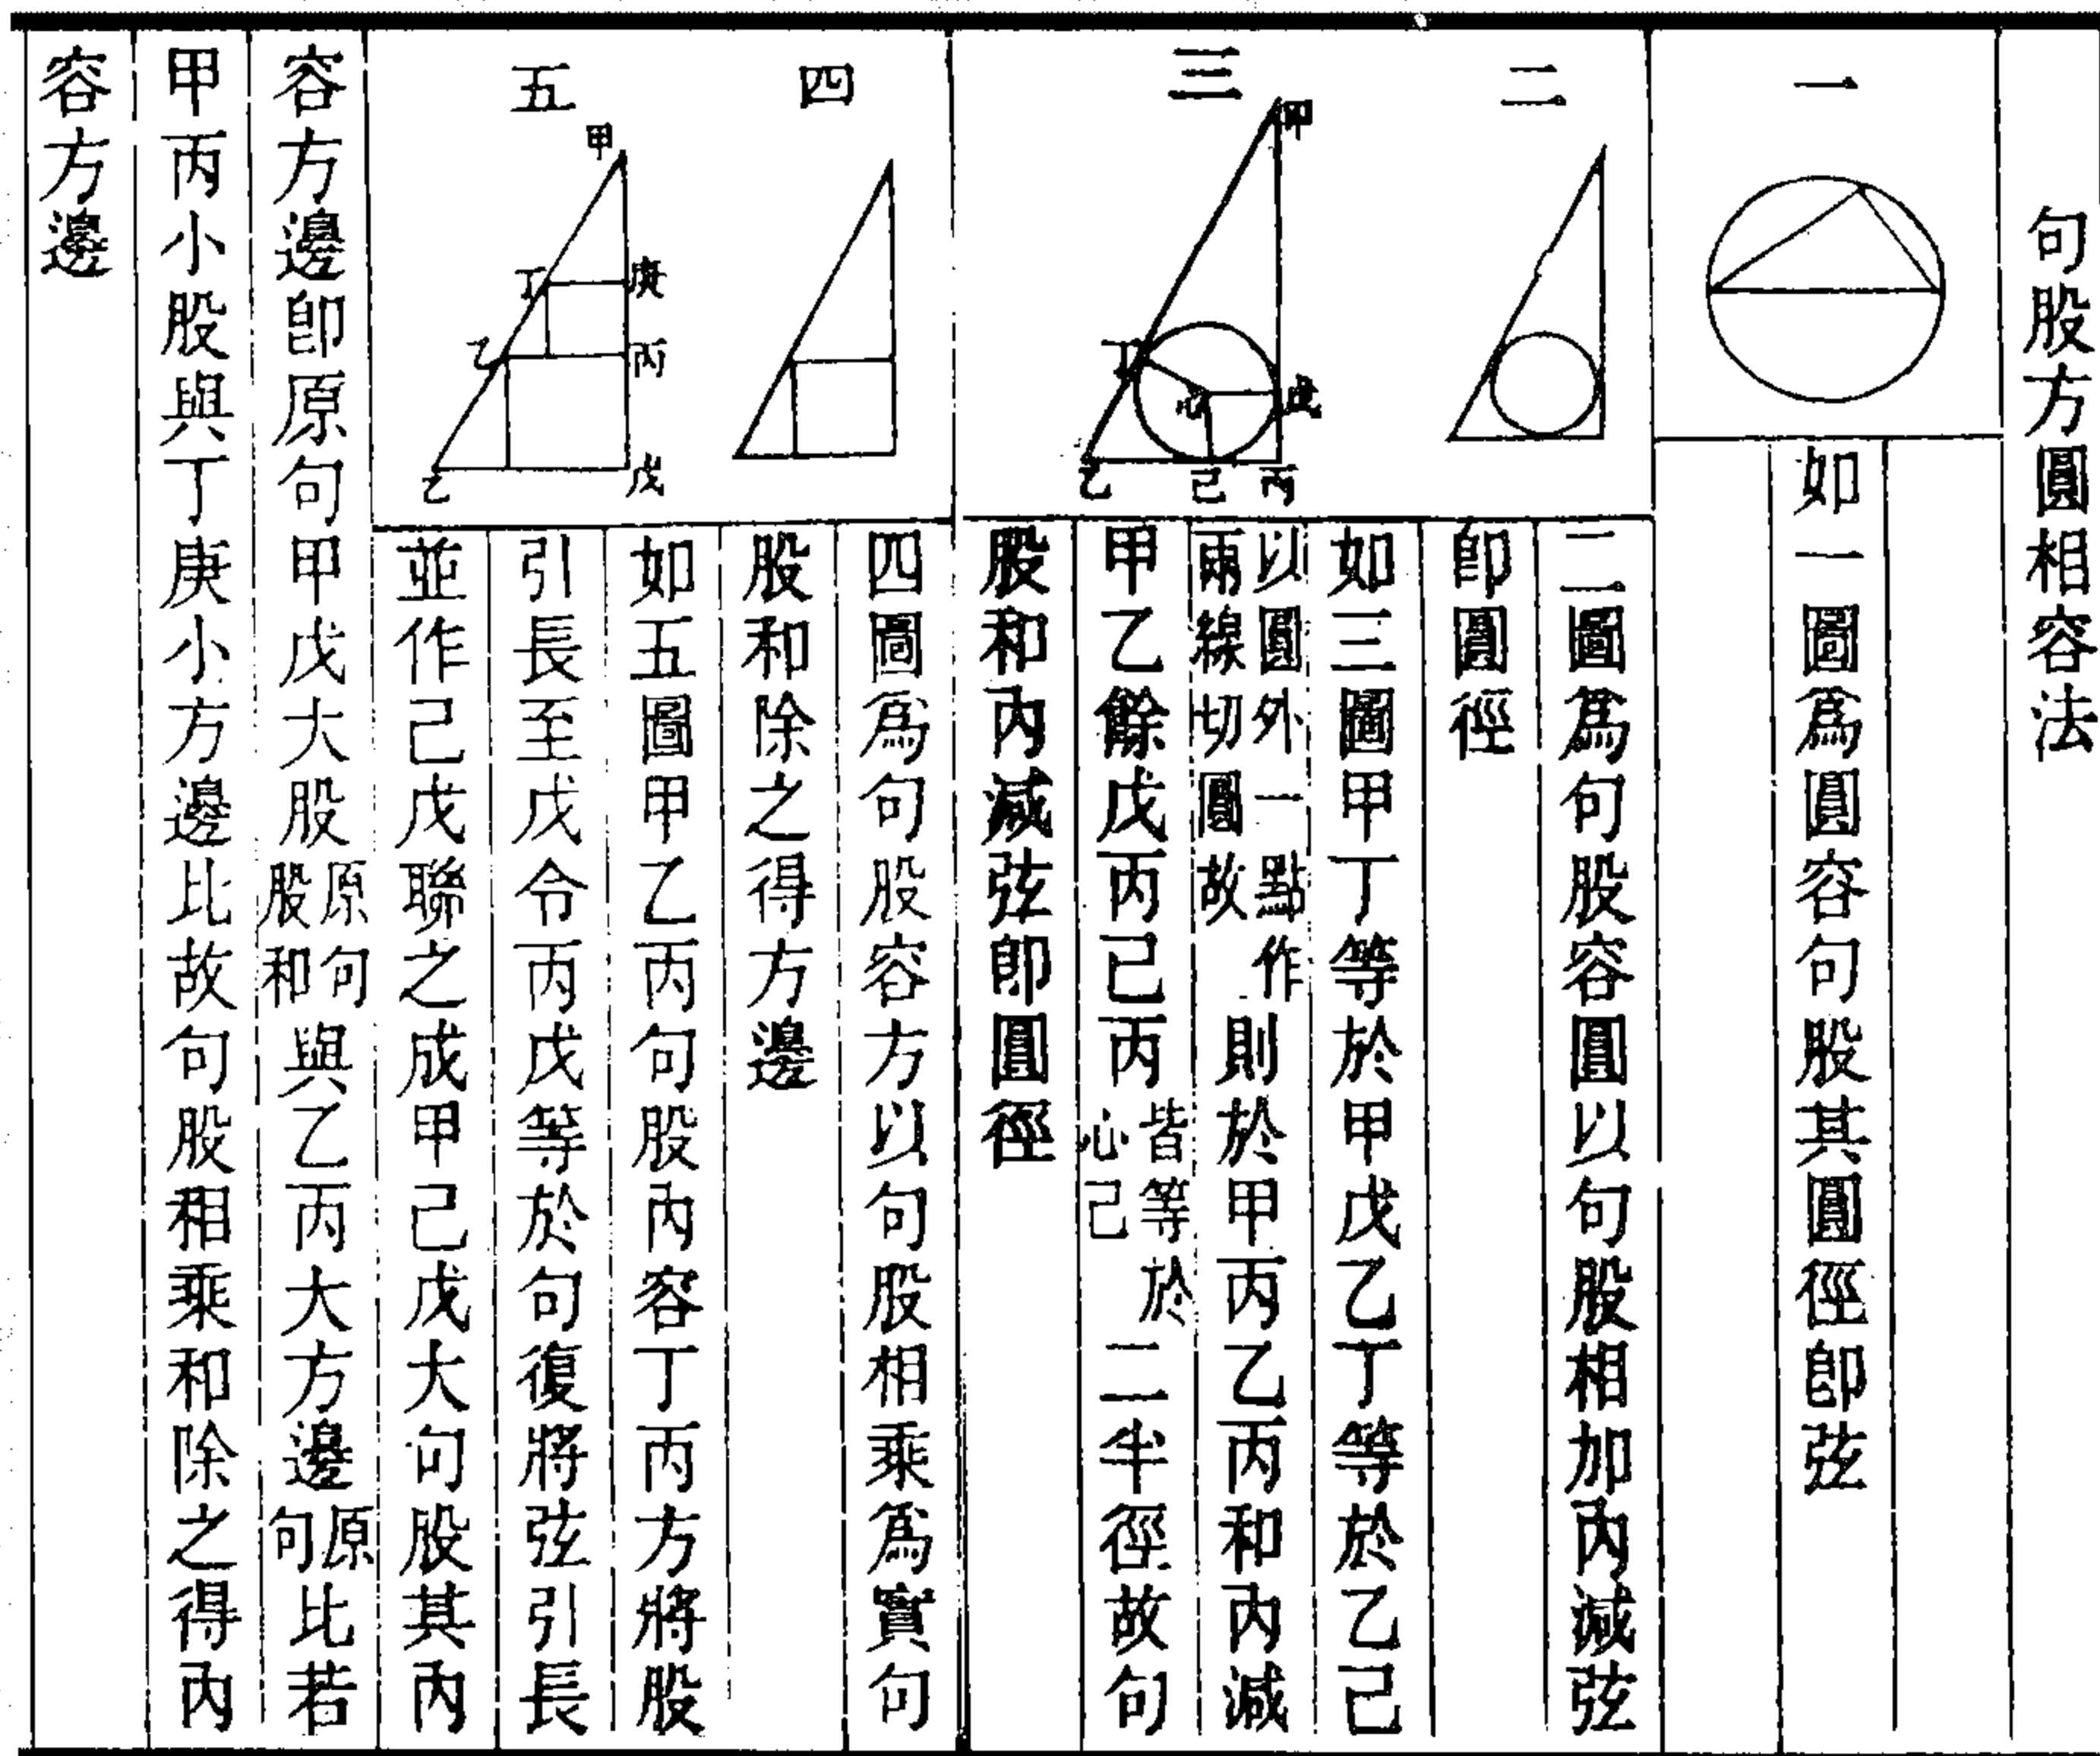 句股方圓相容法
一
如一圖爲圓容句股其圓徑卽弦
二
三
甲
丁
心
戊
乙
己
丙
二圖爲句股容圓以句股相加內減弦
卽圓徑
如三圖甲丁等於甲戊乙丁等於乙己
以圓外一點作
兩線切圓故
則於甲丙乙丙和內減
甲乙餘戊丙己丙
皆等於
心己
二半徑故句
股和內減弦卽圓徑
四
五
甲
丁
庚
乙
丙
乙
戊
四圖爲句股容方以句股相乘爲實句
股和除之得方邊
如五圖甲乙丙句股內容丁丙方將股
引長至戊令丙戊等於句復將弦引長
並作己戊聯之成甲己戊大句股其內
容方邊卽原句甲戊大股
原句
股和
與乙丙大方邊
原
句
比若
甲丙小股與丁庚小方邊比故句股相乘和除之得內
容方邊